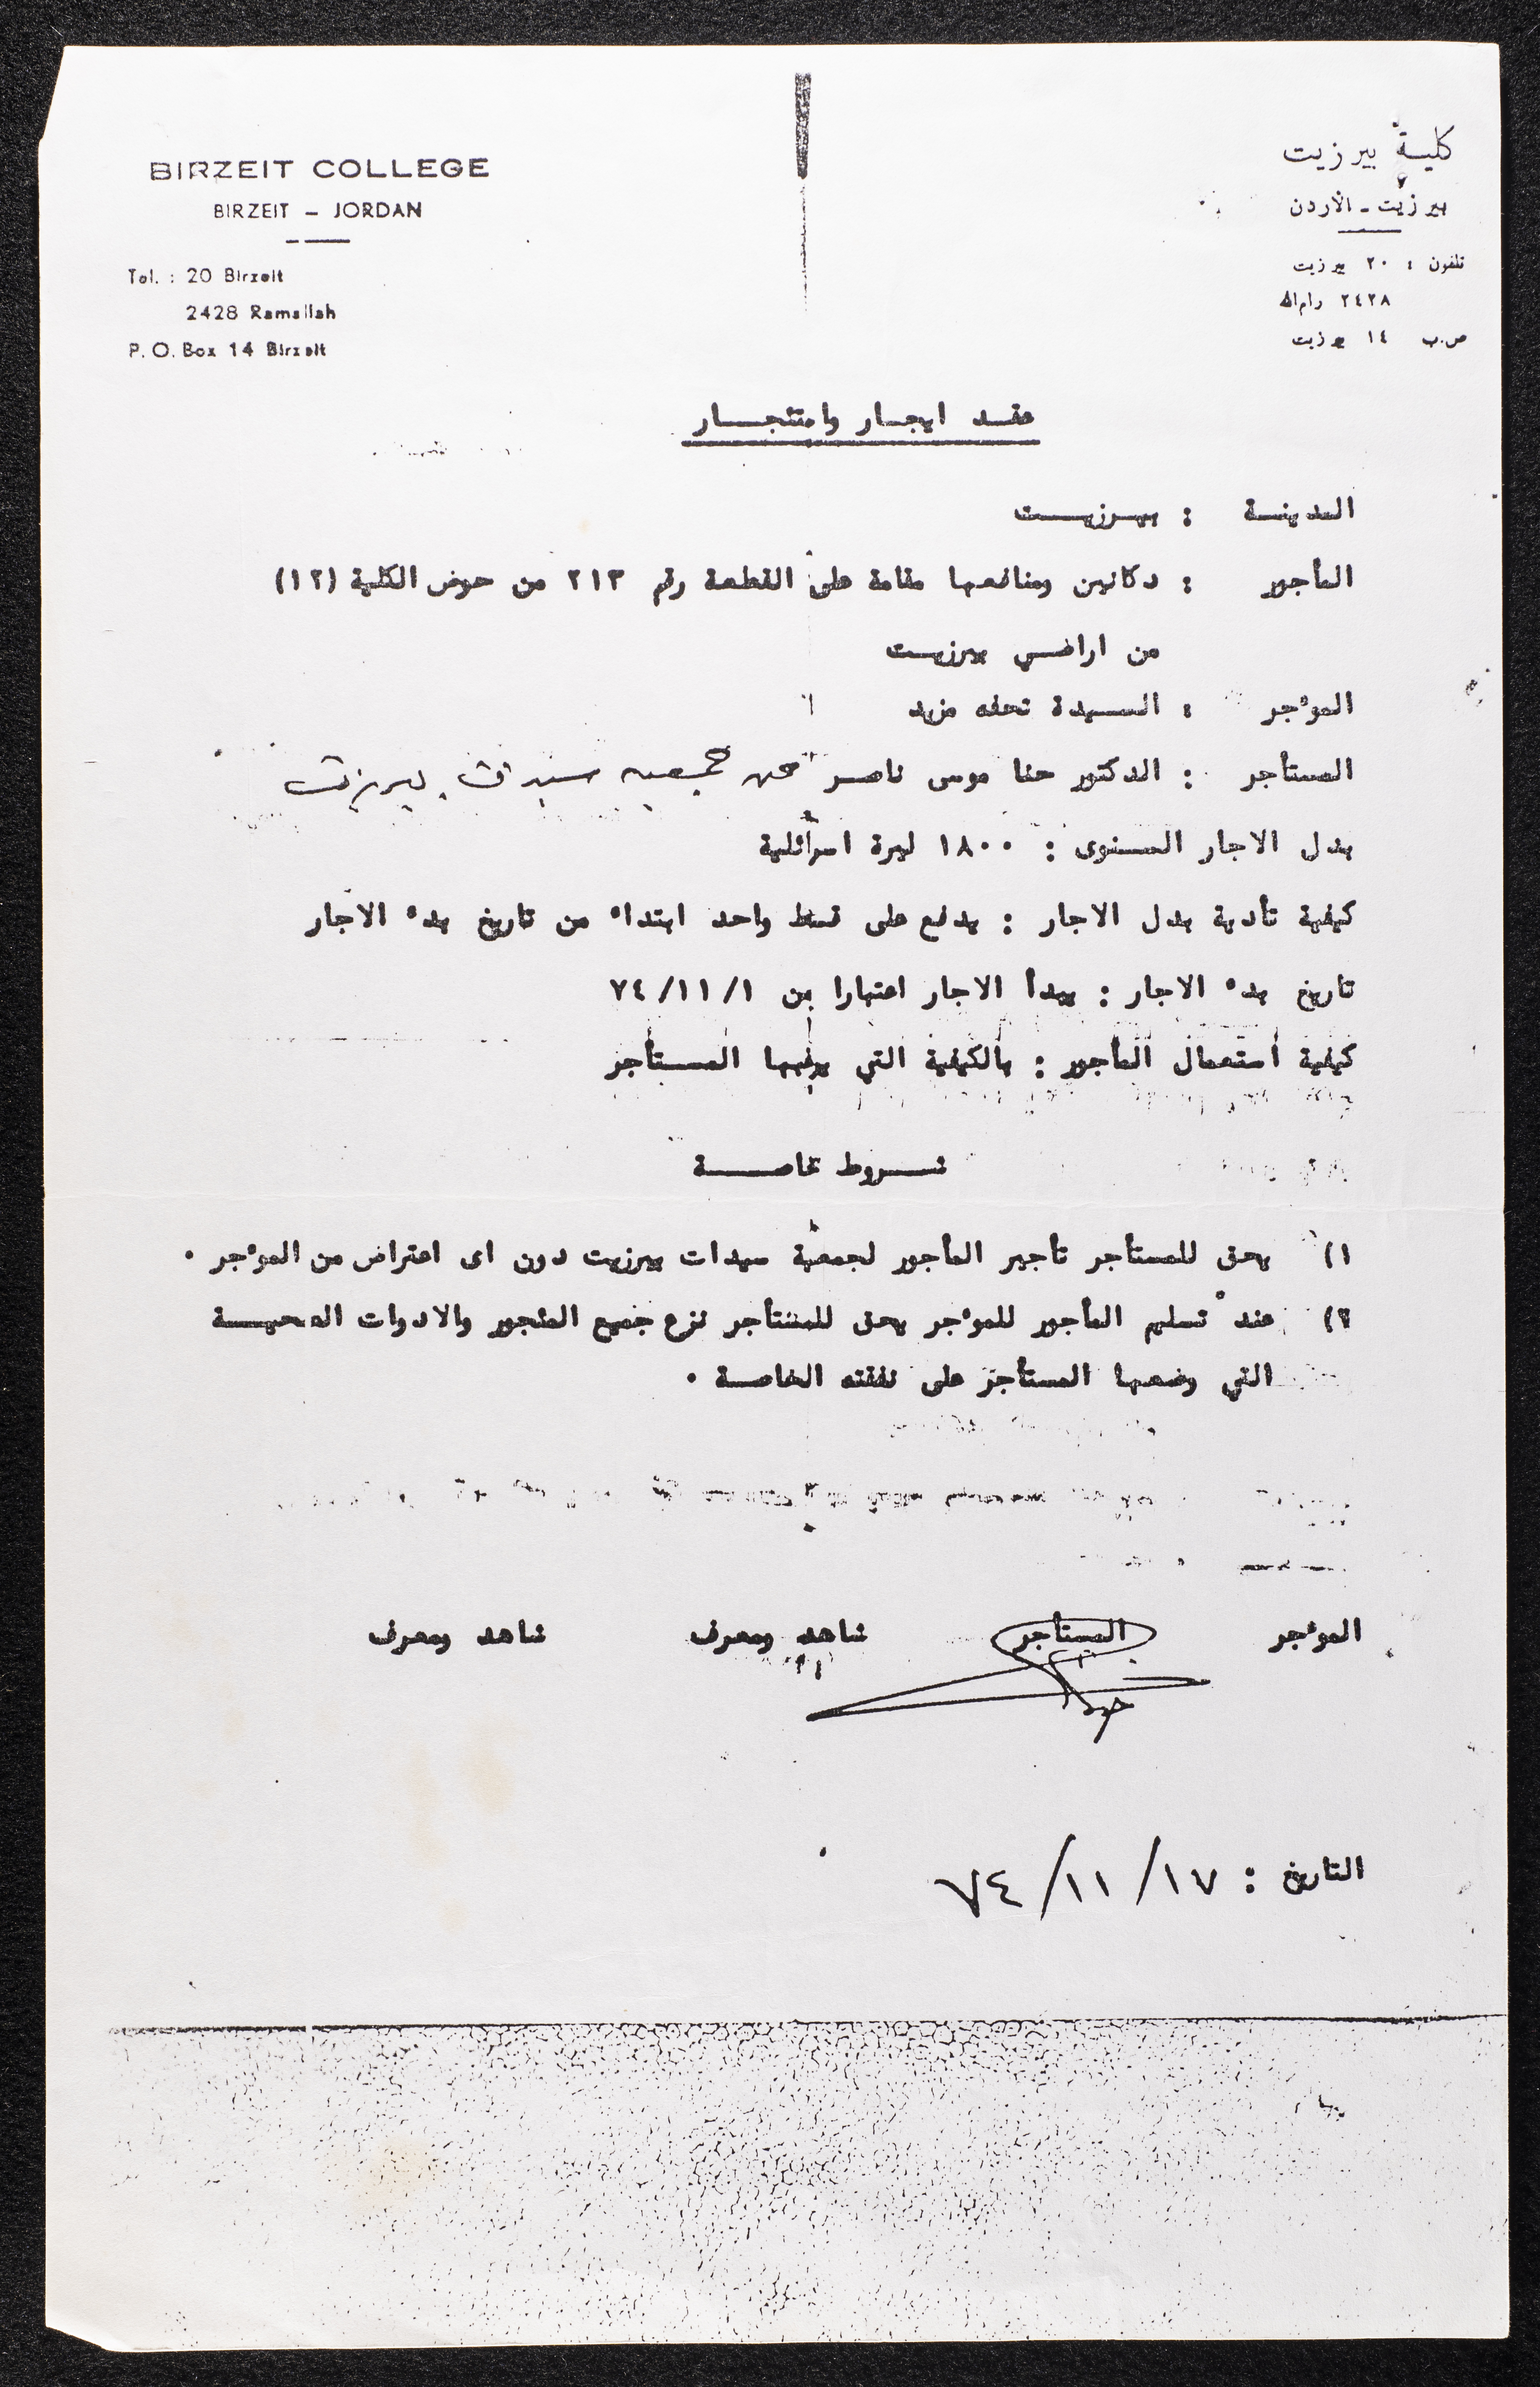 BIRZEIT COLLEGE
BIRZEIT – JORDAN
Tel. : 20 Birzeit
2428 Ramallah
P. O. Box 14 Birzeit
كلية بير زيت
بير زيت - الأردن
تلفون : ٢٠ بير زيت
٢٤٢٨ رام الله
ص.ب ١٤ بير زيت
عقد ايجار واستئجار
المدينة : بيرزيت
المأجور : دكانين ومنافعها مقامة على القطعة رقم ٢١٣ من حوض الكلية (١٢)
من اراضي بيرزيت
المؤجر : السيدة تحفه مزيد
المستأجر : الدكتور حنا موسى ناصر عن جمعيه سيدات بيرزيت
بدل الاجار السنوى : ١٨٠٠ ليرة اسرائلية
كيفية تأدية بدل الاجار : يدفع على قسط واحد ابتداء من تاريخ بدء الاجار
تاريخ بدء الاجار : يبدأ الاجار اعتبارا من ٧٤/١١/١
كيفية استعمال المأجور : بالكيفية التي يرغبها المستأجر
شروط خاصة
١) يحق للمستأجر تأجير المأجور لجمعية سيدات بيرزيت دون اى اعتراض من المؤجر .
٢) عند تسليم المأجور للمؤجر يحق للمستأجر نزع جميع المنجور والادوات الصحية
التي وضعها المستأجر على نفقته الخاصة .
المؤجر المستأجر شاهد ومعرف شاهد ومعرف
التاريخ : ٧٤/١١/١٧